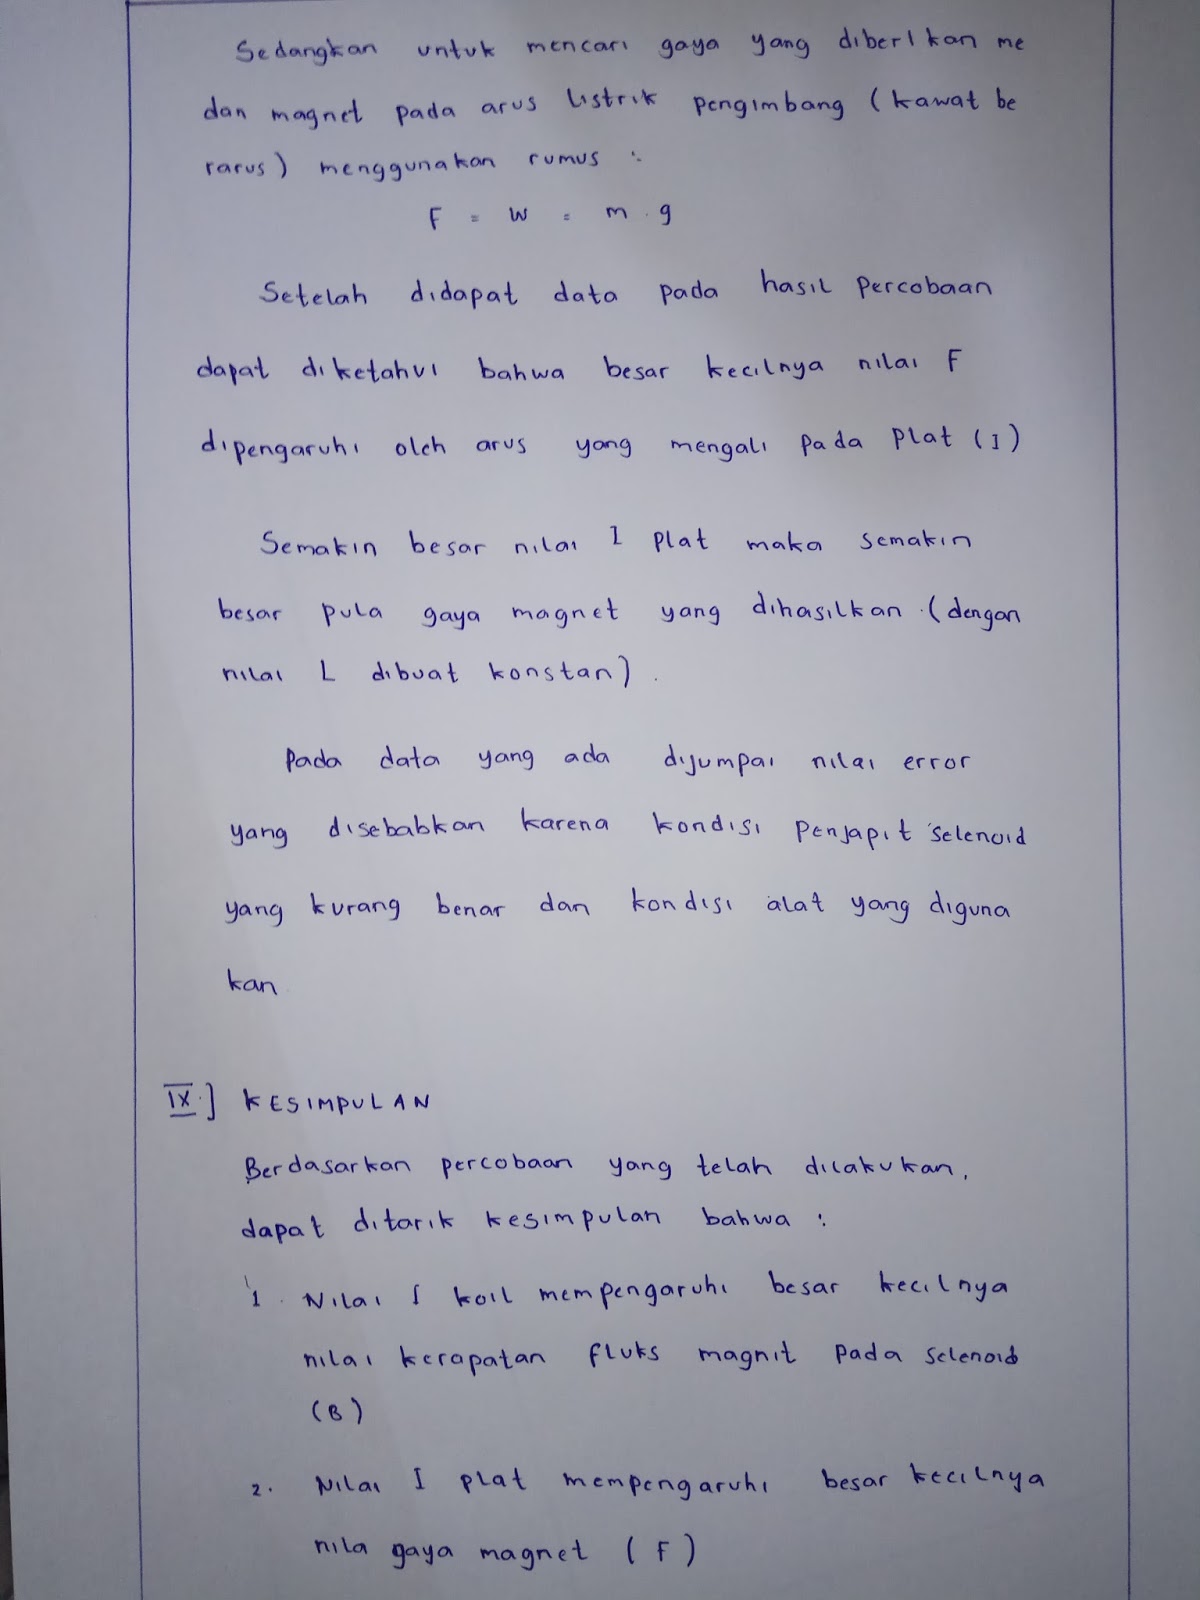 Sedangkan untuk mencari gaya yang diberikan me
dan magnet pada arus listrik pengimbang (kawat be
rarus) menggunakan rumus :
F = W = m . g
Setelah didapat data pada hasil percobaan
dapat diketahui bahwa besar kecilnya nilai F
dipengaruhi oleh arus yang mengali pada plat (I)
Semakin besar nilai I plat maka semakin
besar pula gaya magnet yang dihasilkan (dengan
nilai L dibuat konstan).
Pada data yang ada dijumpai nilai error
yang disebabkan karena kondisi penjapit selenoid
yang kurang benar dan kondisi alat yang diguna
kan
IX.] KESIMPULAN
Berdasarkan percobaan yang telah dilakukan,
dapat ditarik kesimpulan bahwa :
1. Nilai I koil mempengaruhi besar kecilnya
nilai kerapatan fluks magnit pada selenoid
(B)
2. Nilai I plat mempengaruhi besar kecilnya
nila gaya magnet (F)